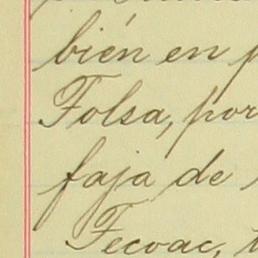 bién en
Tolsa, por
faja de
Tecoac,